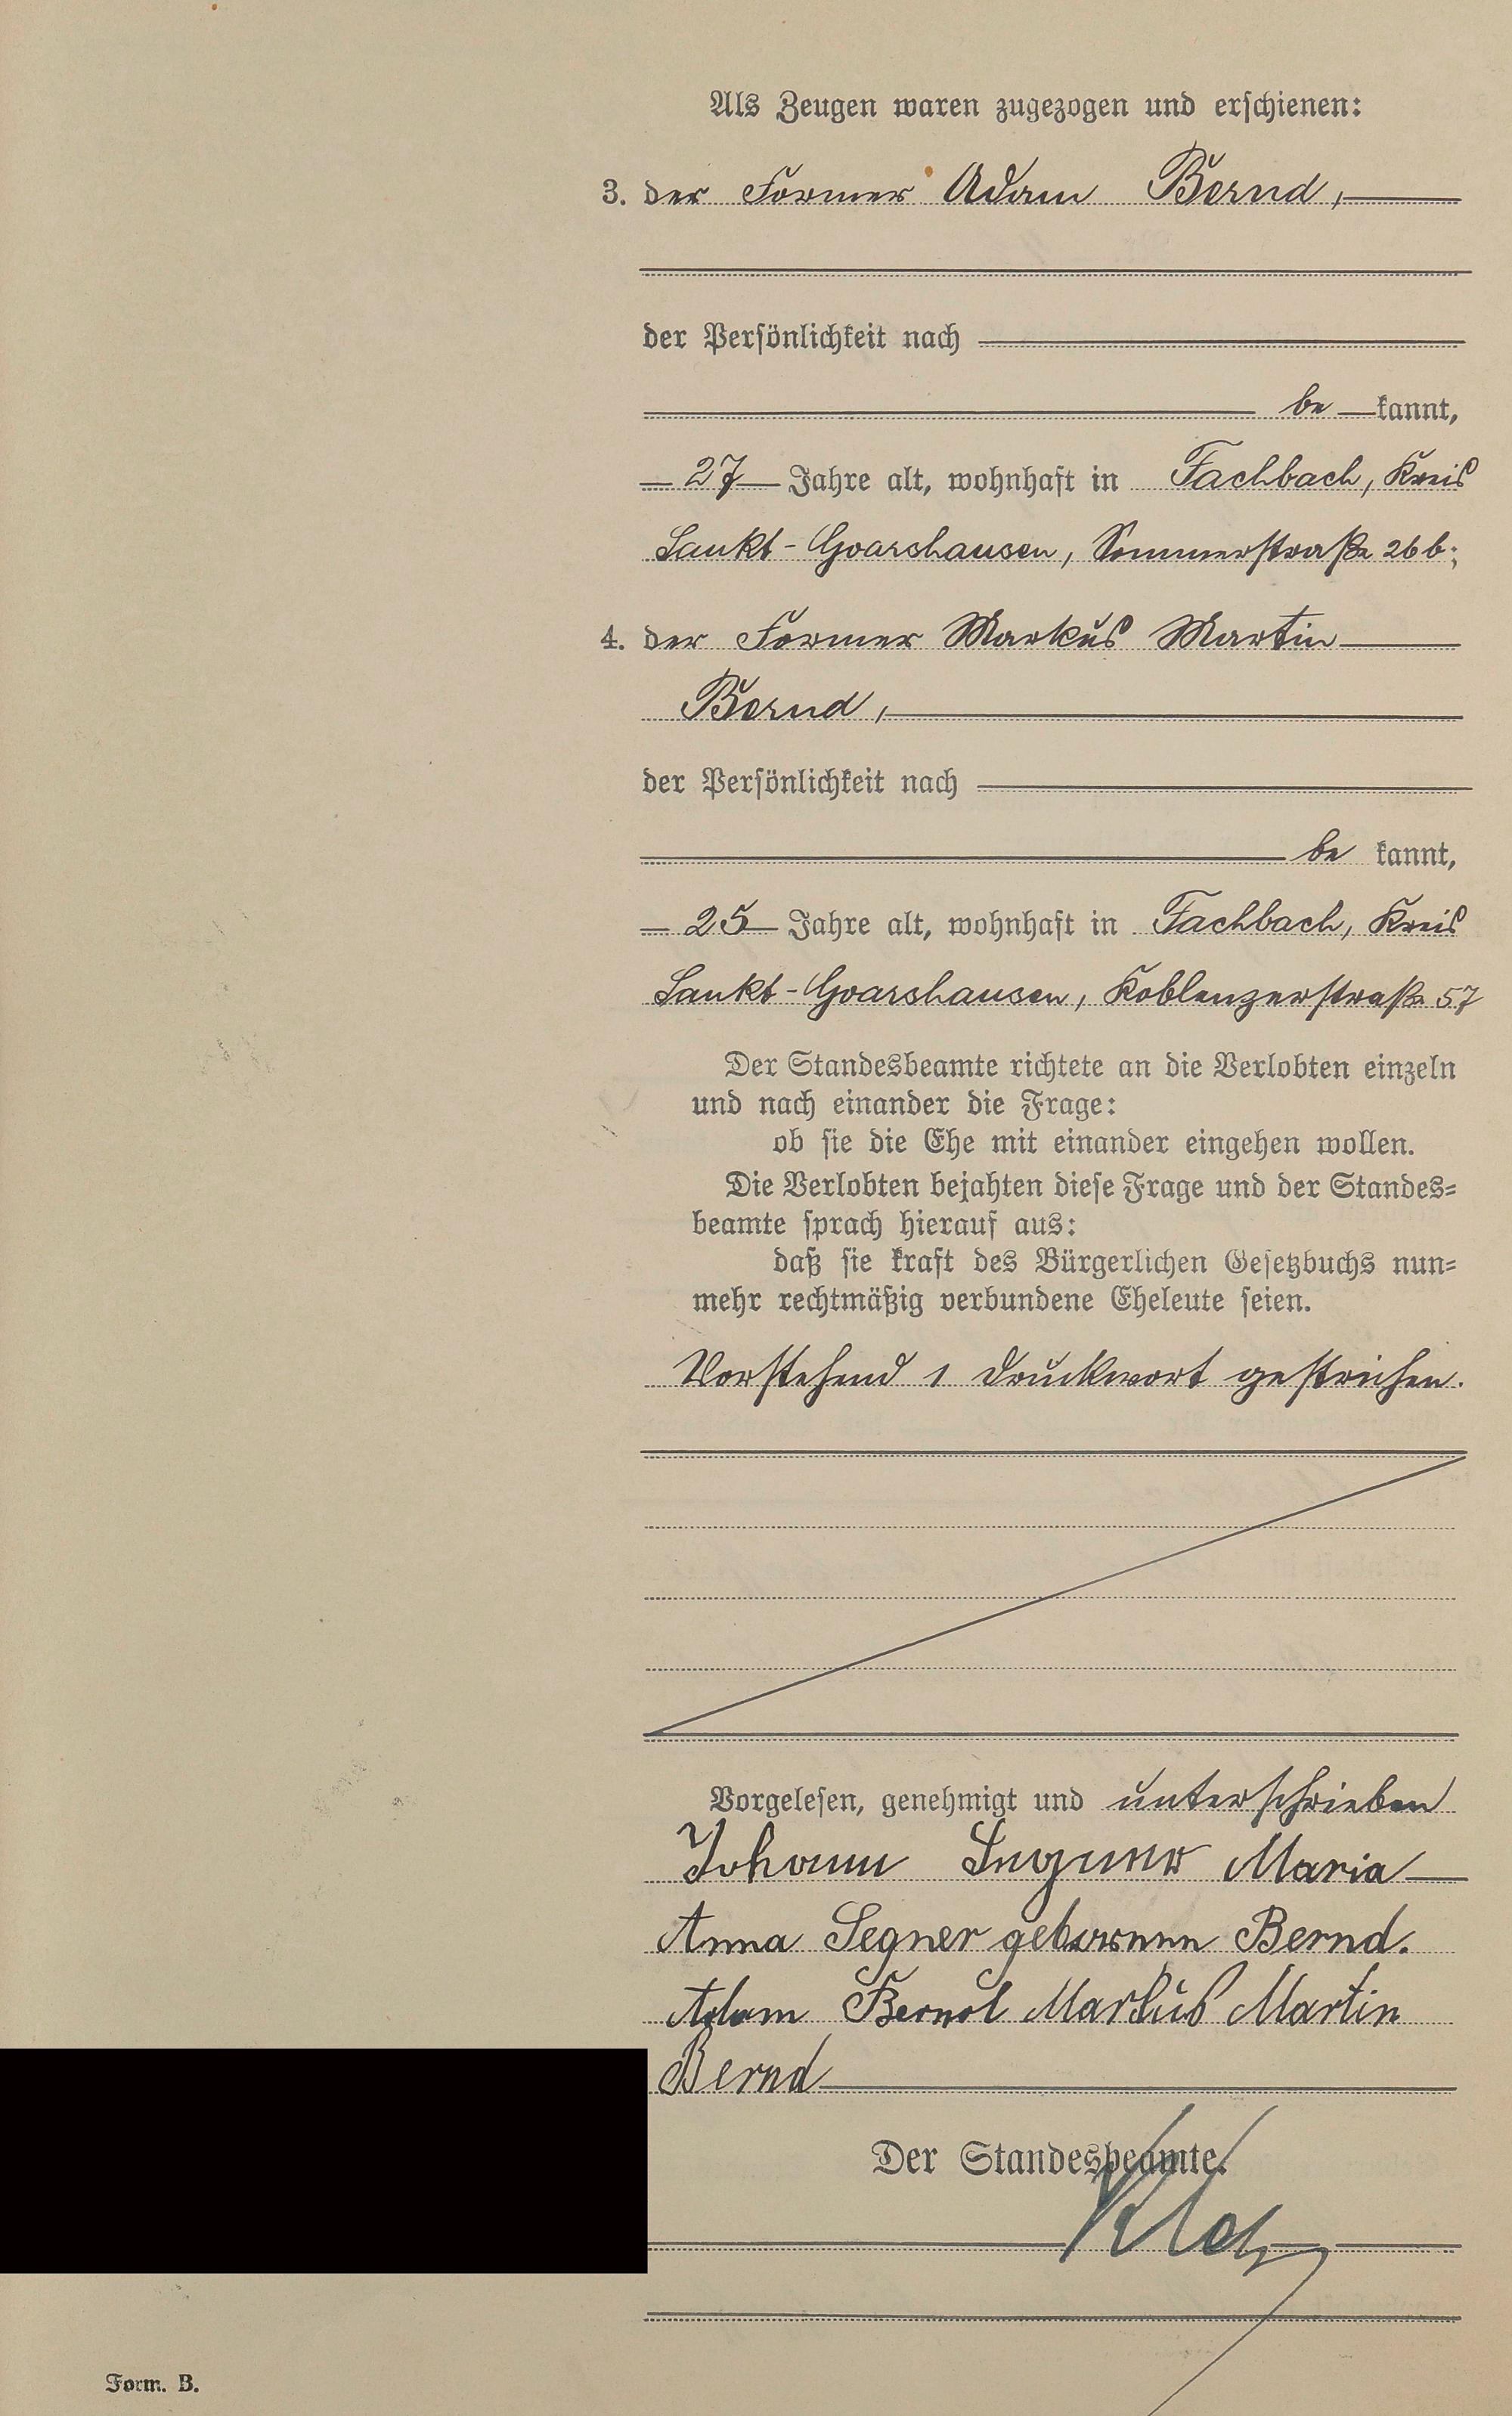 Als Zeugen waren zugezogen und erschienen:
3. der Former Adam Bernd,
der Persönlichkeit nach
be kannt,
27 Jahre alt, wohnhaft in Fachbach, Kreis
Sankt-Goarshausen, Sommerstraße 26b;
4. der Former Markus Martin
Bernd,
der Persönlichkeit nach
be kannt,
25 Jahre alt, wohnhaft in Fachbach, Kreis
Sankt-Goarshausen, Koblenzerstraße 57
Der Standesbeamte richtete an die Verlobten einzeln
und nach einander die Frage:
ob sie die Ehe mit einander eingehen wollen.
Die Verlobten bejahten diese Frage und der Standes-
beamte sprach hierauf aus:
daß sie kraft des Bürgerlichen Gesetzbuchs nun-
mehr rechtmäßig verbundene Eheleute seien.
Vorstehend 1 Druckwort gestrichen.
Vorgelesen, genehmigt und unterschrieben
Johann Segner Maria
Anna Segner geborenen Bernd.
Adam Bernd Markus Martin
Bernd
Der Standesbeamte.
Form. B.